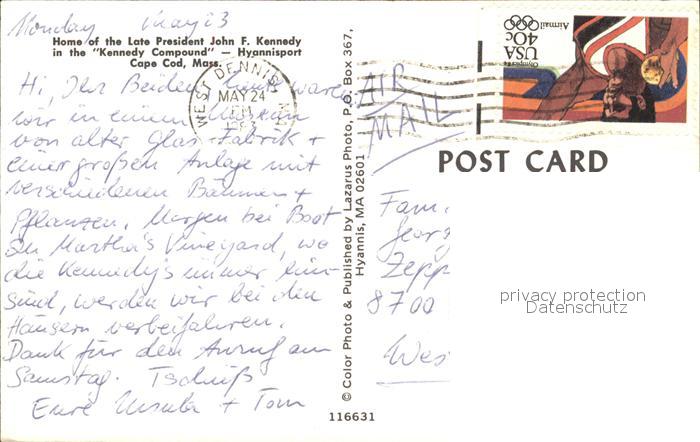 Monday May 23
Home of the Late President John F. Kennedy
in the "Kennedy Compound" — Hyannisport
Cape Cod, Mass.
Hi, Ihr Beiden, heute waren
wir in einem Museum
von alter Glas-Fabrik +
einer großen Anlage mit
verschiedenen Bäumen +
Pflanzen. Morgen bei Boot
zu Martha's Vineyard, wo
die Kennedy's immer
sind, werden wir bei den
Häusern vorbeifahren.
Dank für den Anruf am
Samstag. Tschüß
Eure Ursula + Tom
WEST DENNIS
MAY 24
PM
© Color Photo & Published by Lazarus Photo, P.O. Box 367,
Hyannis, MA 02601
116631
Olympics 84
USA
40c
Airmail
AIR
MAIL
POST CARD
Fam.
Georg
Zepp
8700
Wes
privacy protection
Datenschutz